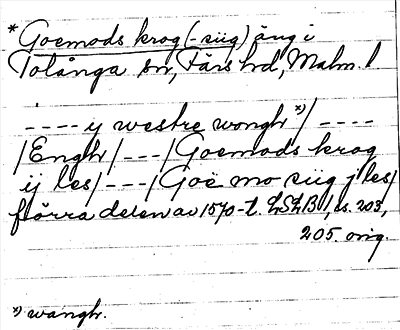 * Goemods krog (-siig) äng i
Tolånga sn, Färs hd, Malm. l
---- ij westre wongh x)/ ----
/Enghr/---/Goemods krog
ij les/---/Goë mo siig j les/
förra delen av 1570-t. LSLB 1, s. 203,
205. orig.
x) wangh.